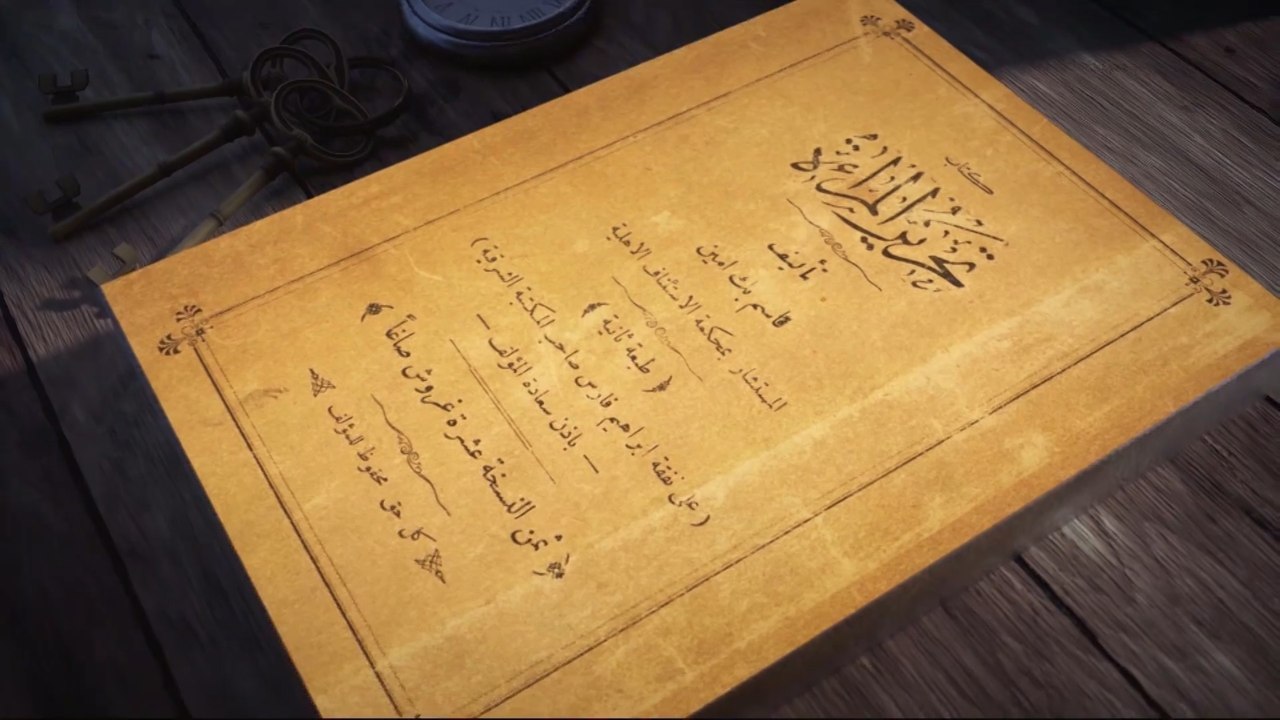 كتاب
تحرير المراءة
تأليف
قاسم بك امين
المستشار بمحكمة الاستئناف الاهلية
( طبعة ثانية )
( على نفقة ابراهيم فارس صاحب المكتبة الشرقية )
— باذن سعادة المؤلف —
( ثمن النسخة عشرة غروش صاغاً )
كل حق محفوظ للمؤلف